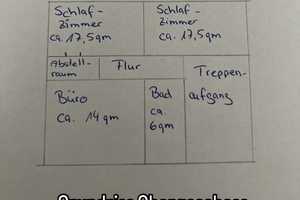 Schlaf-
zimmer
ca. 17,5qm
Schlaf-
zimmer
ca. 17,5qm
Abstell-
raum
Flur
Treppen-
aufgang
Büro
ca. 14qm
Bad
ca.
6qm
Grundriss Obergeschoss